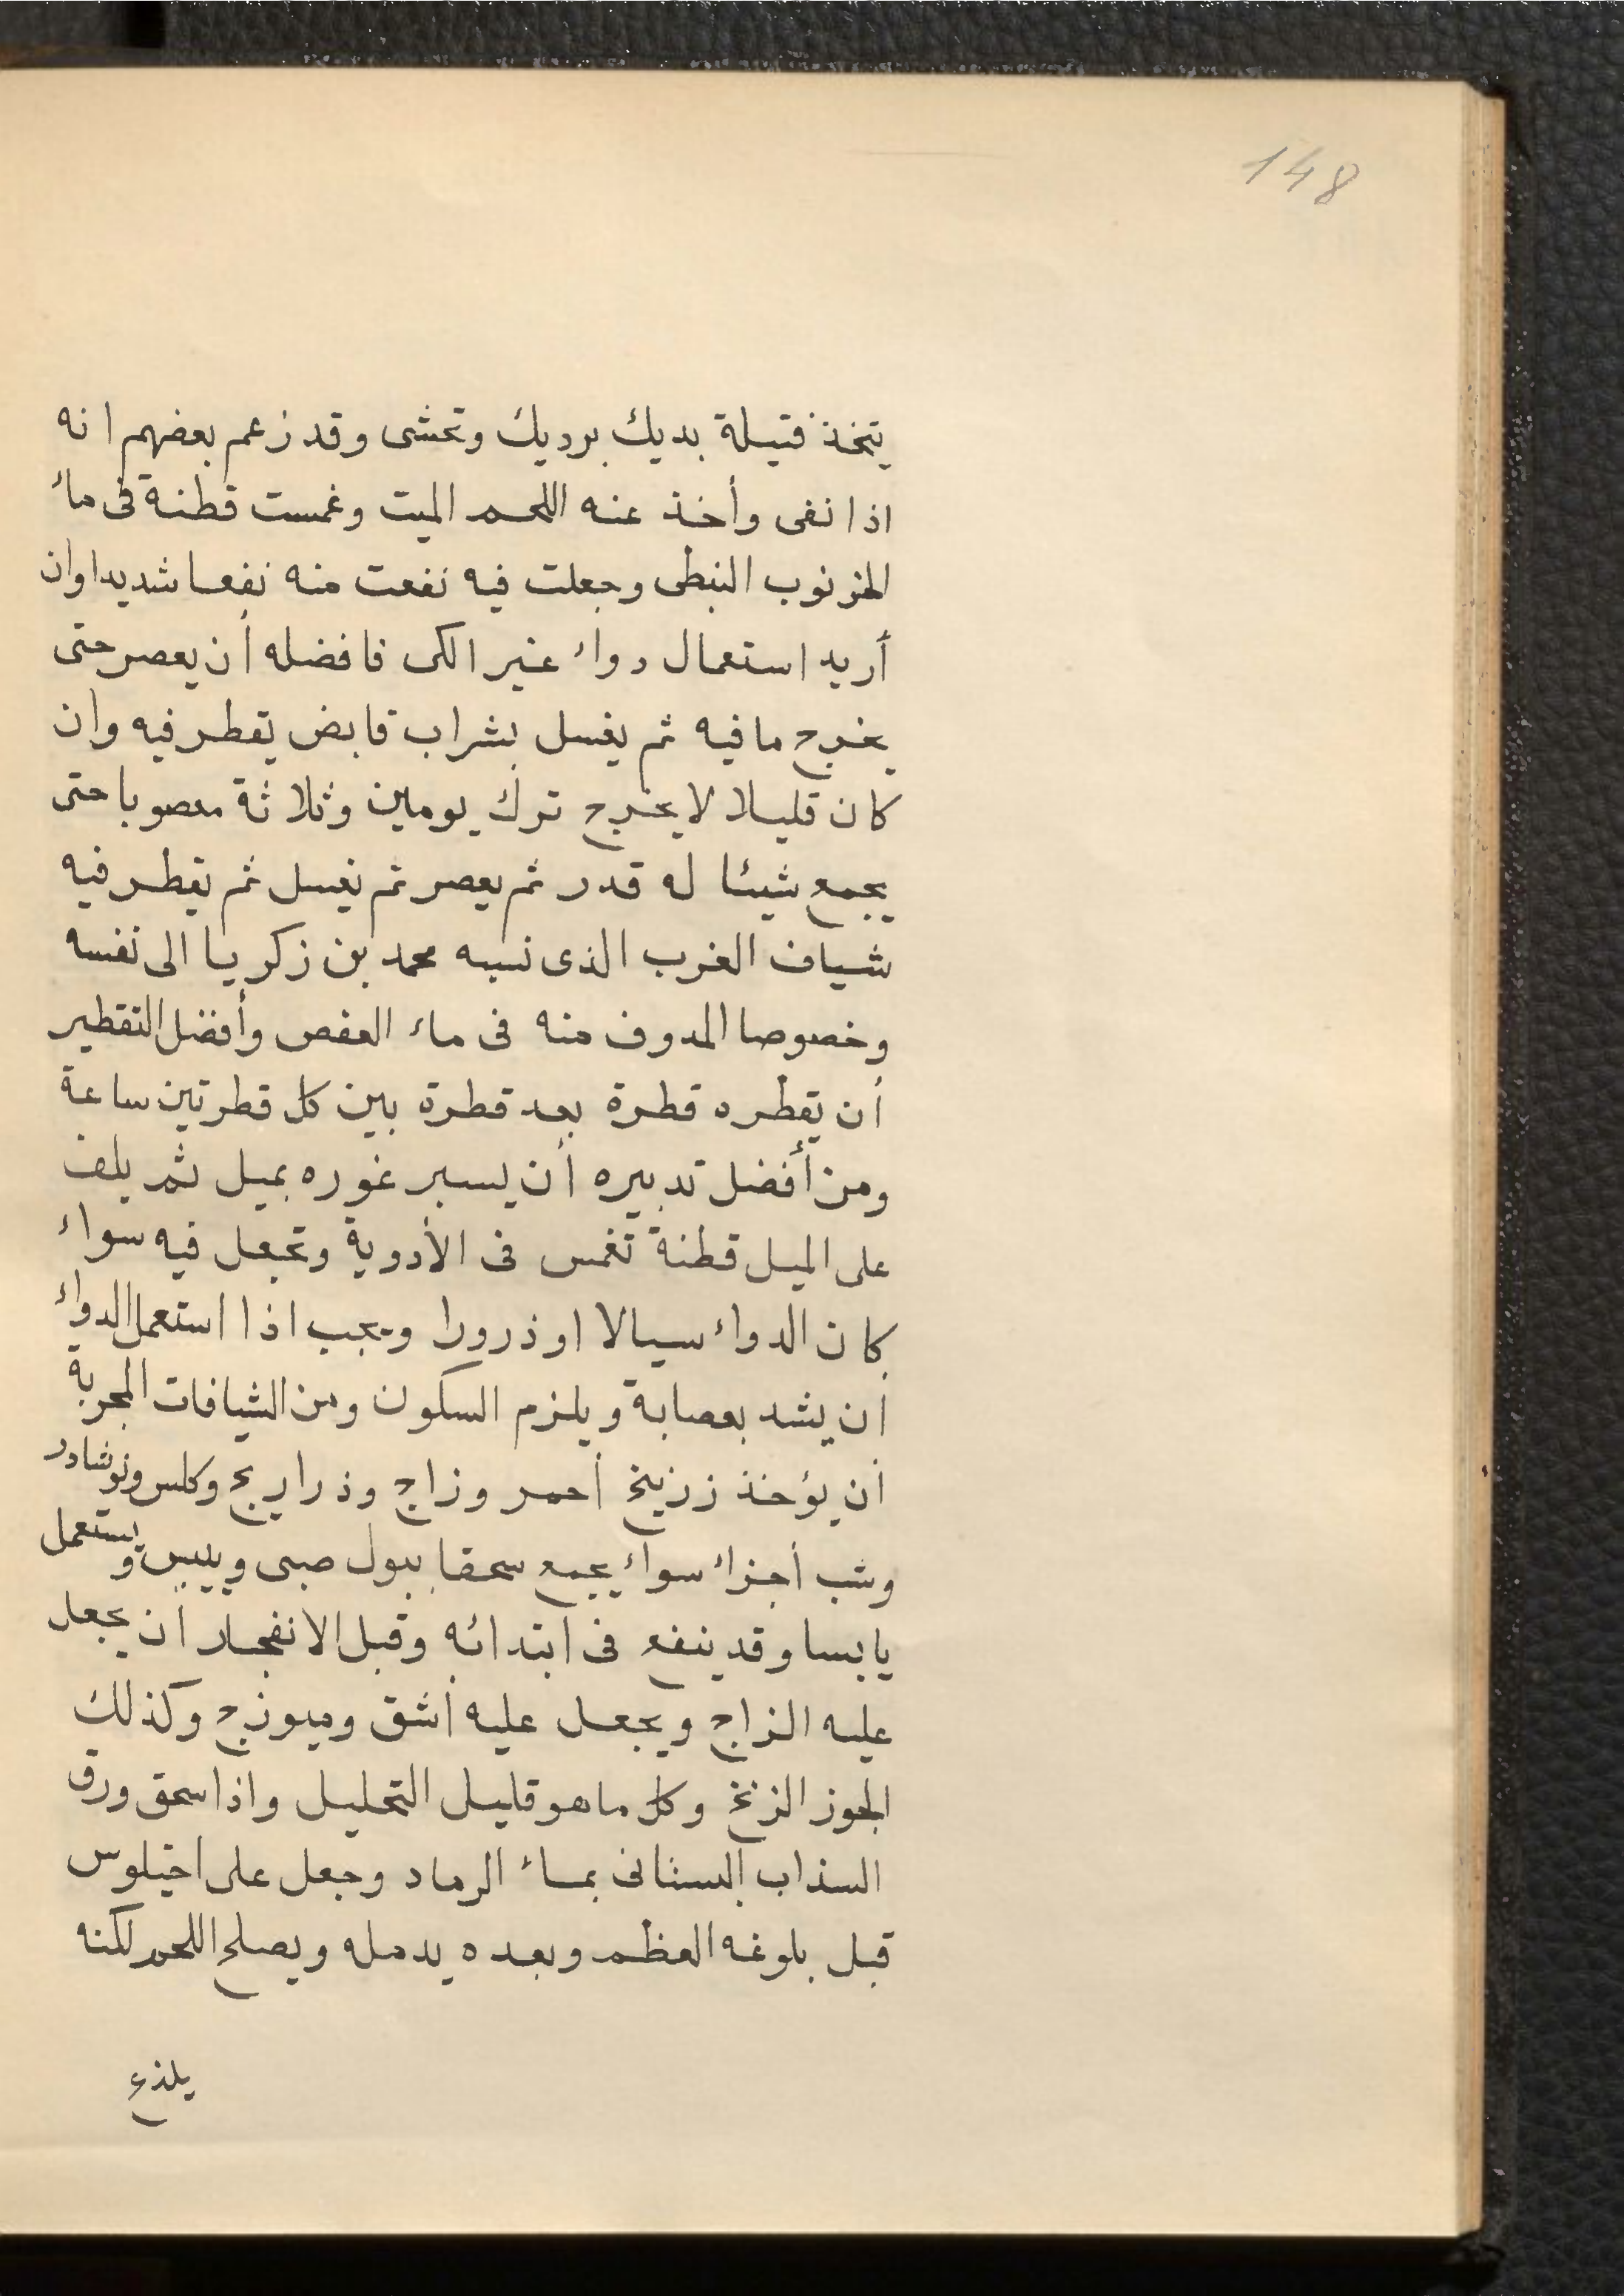 148
يتخذ فتيلة بديك برديك وتحشى وقد زعم بعضهم انه
اذا نفى وأخذ عنه اللحم الميت وغمست قطنة فى ماء
الخرنوب النبطى وجعلت فيه نفعت منه نفعا شديدا وان
أريد استعمال دواء غير الكى فافضله أن يعصر حتى
يخرج ما فيه ثم يغسل بشراب قابض يقطر فيه وان
كان قليلا لا يخرج ترك يومين وثلاثة معصوبا حتى
يجمع شيئا له قدر ثم يعصر ثم يغسل ثم يقطر فيه
شياف الغرب الذى نسبه محمد بن زكريا الى نفسه
وخصوصا المدوف منه فى ماء العفص وأفضل التقطير
أن يقطره قطرة بعد قطرة بين كل قطرتين ساعة
ومن أفضل تدبيره أن يسبر غوره بميل ثم يلف
على الميل قطنة تغمس فى الأدوية وتجعل فيه سواء
كان الدواء سيالا او ذرورا ويجب اذا استعمل الدواء
أن يشد بعصابة ويلزم السكون ومن الشيافات المجربة
أن يؤخذ زرنيخ أحمر وزاج وذراريح وكلس ونوشادر
وشب أجزاء سواء يجمع سحقا ببول صبى وييبس ويستعمل
يابسا وقد ينفع فى ابتدائه وقبل الانفجار أن يجعل
عليه الزاج ويجعل عليه أشق وميوزج وكذلك
الجوز الزنخ وكل ما هو قليل التحليل واذا سحق ورق
السذاب البستانى بماء الرماد وجعل على اخيلوس
قبل بلوغه العظم وبعده يدمله ويصلح اللحم لكنه
يلذع